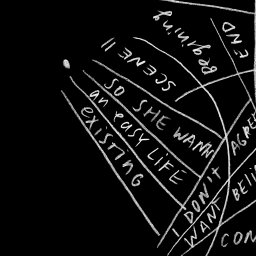 beginning
END
SCENE II
SO SHE WANNA
an easy LIFE
existing
I DON'T AGREE
WANT